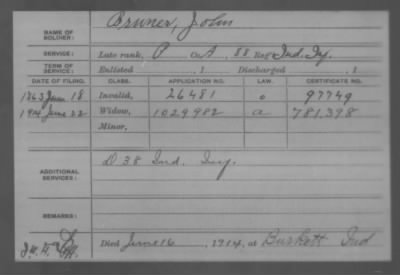 NAME OF SOLDIER: Bruner, John
SERVICE: Late rank, P Co. A, 88 Reg't Ind. Inf.
TERM OF SERVICE: Enlisted , 1 Discharged , 1
DATE OF FILING. CLASS. APPLICATION NO. LAW. CERTIFICATE NO.
1863 Jan. 18 Invalid, 26481 o 97749
1914 June 22 Widow, 1029982 a 781,398
Minor,
ADDITIONAL SERVICES: D 38 Ind. Inf.
REMARKS:
Died June 16, 1914, at Burkett Ind